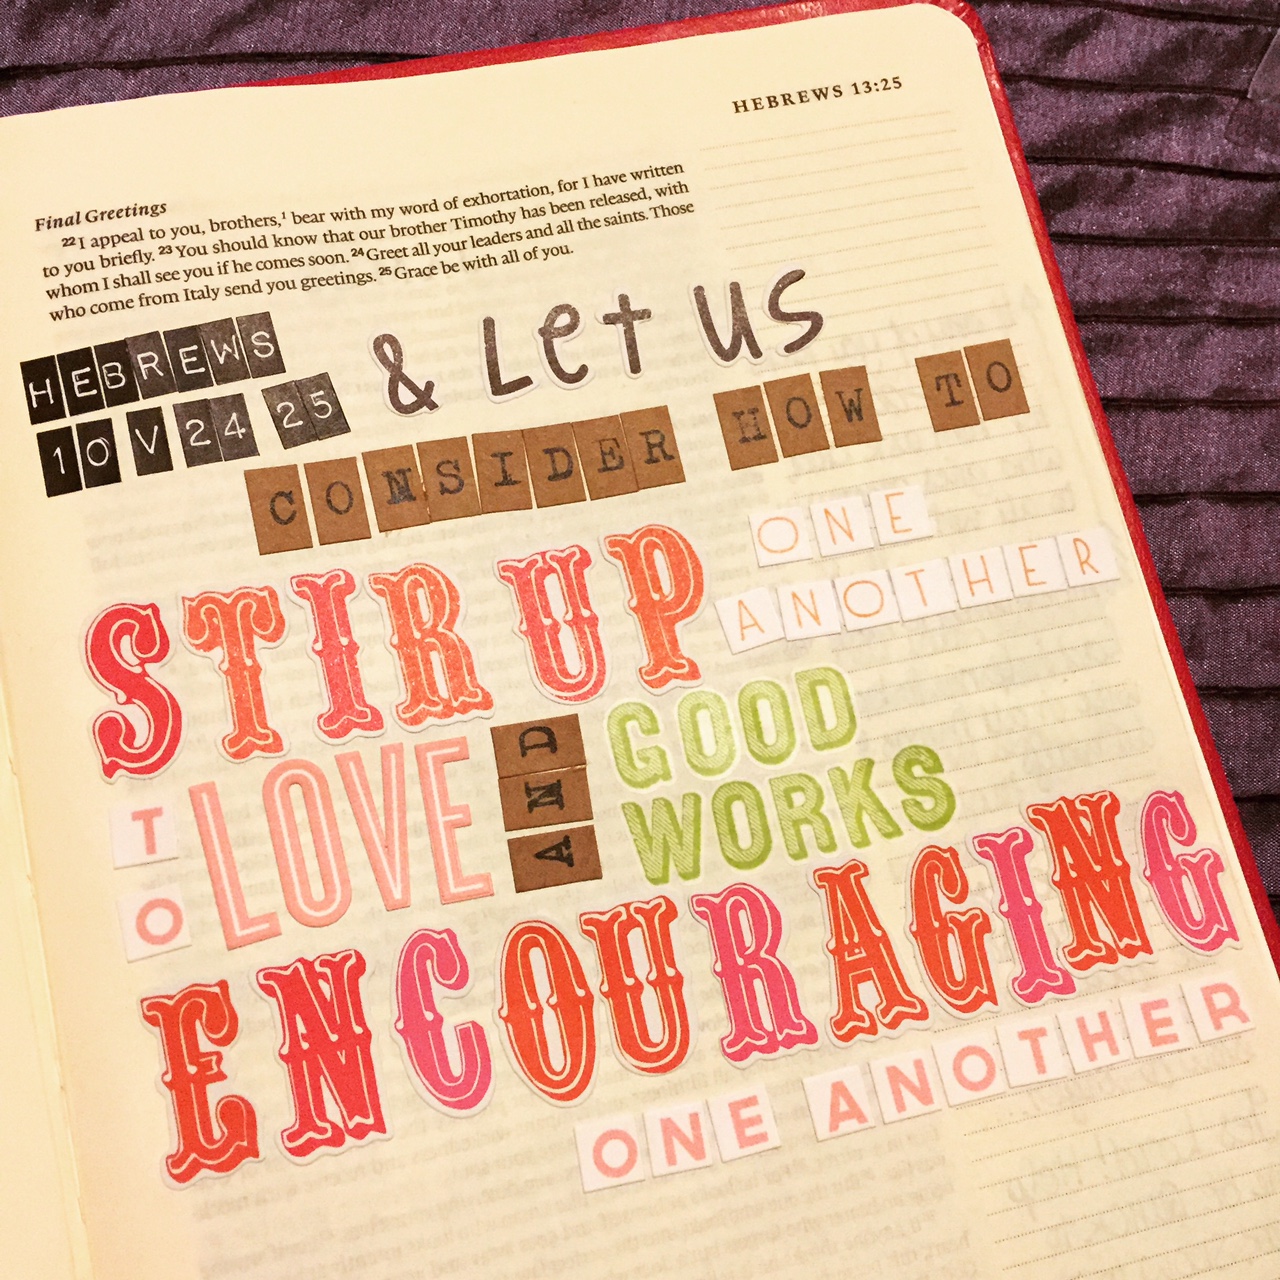 HEBREWS 13:25
Final Greetings
22 I appeal to you, brothers,1 bear with my word of exhortation, for I have written
to you briefly. 23 You should know that our brother Timothy has been released, with
whom I shall see you if he comes soon. 24 Greet all your leaders and all the saints. Those
who come from Italy send you greetings. 25 Grace be with all of you.
HEBREWS
10 V 24 25
& Let US
CONSIDER HOW TO
STIR UP
ONE
ANOTHER
TO
LOVE
AND
GOOD
WORKS
ENCOURAGING
ONE ANOTHER